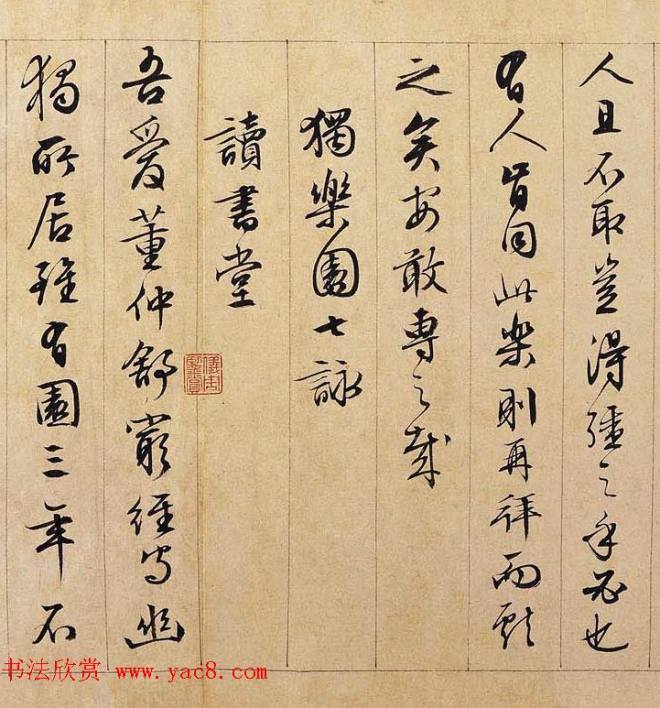 人且不取豈得彊之乎必也
有人肯同此樂則再拜而獻
之矣安敢專之哉
獨樂園七詠
讀書堂
儀周鑒賞
吾愛董仲舒窮經守幽
獨所居雖有園三年不
书法欣赏 www.yac8.com